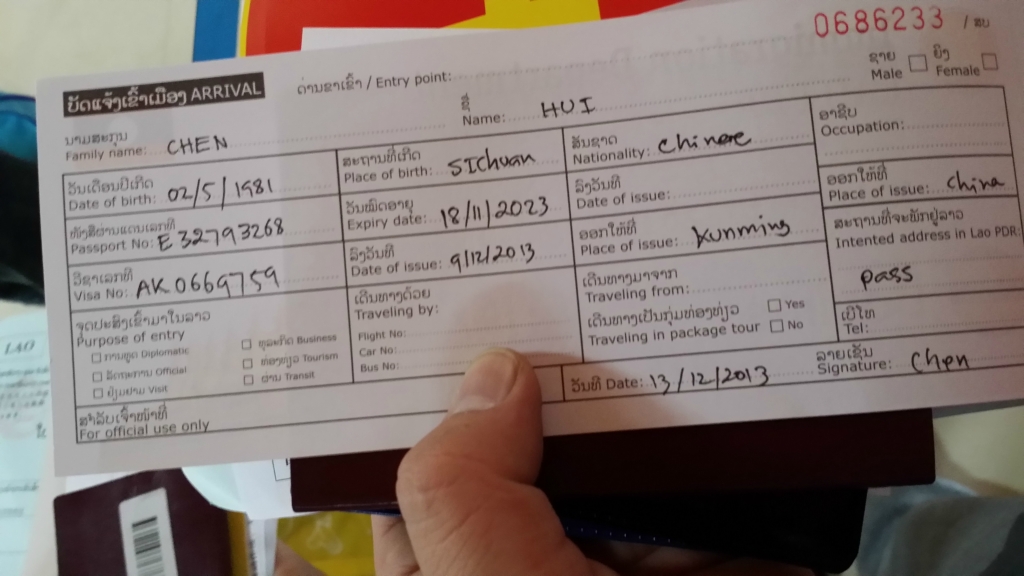 0686233 / ສບ
ບັດແຈ້ງເຂົ້າເມືອງ ARRIVAL
ດ່ານຂາເຂົ້າ / Entry point:
ຊາຍ
Male
ຍິງ
Female
ນາມສະກຸນ
Family name: CHEN
ຊື່
Name: HUI
ວັນເດືອນປີເກີດ
Date of birth: 02/5/1981
ສະຖານທີ່ເກີດ
Place of birth: SIchuan
ສັນຊາດ
Nationality: Chinese
ອາຊີບ
Occupation:
ໜັງສືຜ່ານແດນເລກທີ
Passport No: E 32793268
ວັນໝົດອາຍຸ
Expiry date: 18/11/2023
ລົງວັນທີ
Date of issue:
ອອກໃຫ້ທີ່
Place of issue: china
ວີຊາເລກທີ
Visa No: AK 0669759
ລົງວັນທີ
Date of issue: 9/12/2013
ອອກໃຫ້ທີ່
Place of issue: kunming
ສະຖານທີ່ຈະພັກຢູ່ລາວ
Intented address in Lao PDR:
pass
ຈຸດປະສົງເຂົ້າມາໃນລາວ
Purpose of entry
ການທູດ Diplomatic
ລັດຖະການ Official
ຢ້ຽມຢາມ Visit
ທຸລະກິດ Business
ທ່ອງທ່ຽວ Tourism
ຜ່ານ Transit
ເດີນທາງດ້ວຍ
Traveling by:
Flight No:
Car No:
Bus No:
ເດີນທາງມາຈາກ
Traveling from:
ເດີນທາງເປັນກຸ່ມທ່ອງທ່ຽວ
Traveling in package tour
Yes
No
ເບີໂທ
Tel:
ສຳລັບເຈົ້າໜ້າທີ່
For official use only
ວັນທີ Date: 13/12/2013
ລາຍເຊັນ
Signature: Chen
LAO